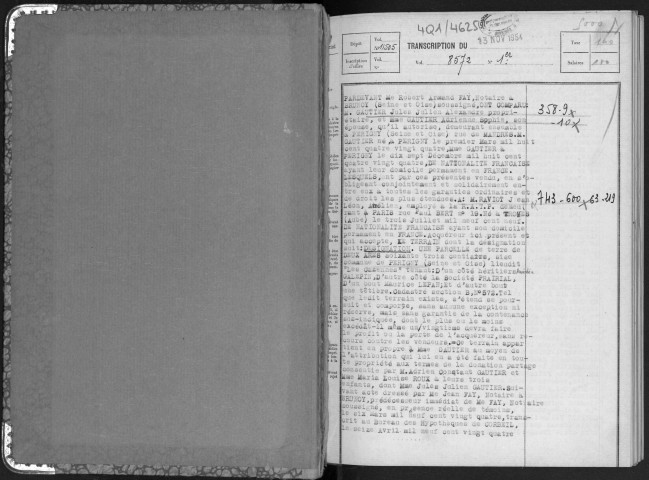 4Q1/4625
13 NOV 1951
Dépôt Vol.
N° 1505
TRANSCRIPTION DU
Taxe
Inscription d'office Vol.
N°
Vol. 8572 N° 1er
Salaires
PARDEVANT Me Robert Armand FAY, Notaire à
BRUNOY (Seine et Oise) soussigné, ONT COMPARU
M. GAUTIER Jules Julien Alexandre propri-
étaire, et Mme GAUTIER Adrienne Sophie, son
épouse, qu'il autorise, demeurant ensemble
à PERIGNY (Seine et Oise) rue de MANDRES. M.
GAUTIER né à PERIGNY le premier Mars mil huit
cent quatre vingt quatre, Mme GAUTIER à
PERIGNY le six Sept Décembre mil huit cent
quatre vingt quatre, DE NATIONALITE FRANCAISE
ayant leur domicile permanent en FRANCE.
LESQUELS, ont par ces présentes vendu, en s'o-
bligeant conjointement et solidairement en-
tre eux à toutes les garanties ordinaires et
de droit les plus étendues. A: M. RAVIOT Jean
Léon, Amélien, employé à la R.A.T.P. demeu-
rant à PARIS rue Paul BERT n° 19. Né à
(Aube) le trois Juillet mil neuf cent neuf.
DE NATIONALITE FRANCAISE ayant son domicile
permanent en FRANCE. Acquéreur ici présent et
qui accepte, LE TERRAIN dont la désignation
suit: DESIGNATION. UNE PARCELLE de terre de
DEUX ARES soixante trois centiares, sise
commune de PERIGNY (Seine et Oise) lieudit
tenant: D'un côté héritiers
GALEPIN, d'autre côté la Société PRAIRIAL,
D'un bout Maurice et d'autre bout
une Cadastré section B, N° 572. Tel
que ledit terrain existe, s'étend se pour-
suit et comporte, sans aucune exception ni
réserve, mais sans garantie de la contenance
sus-indiquée, dont le plus ou le moins
excédât-il même un vingtième devra faire
le profit ou la perte de l'acquéreur, sans re-
cours contre les vendeurs.=Ce terrain appar
tient en propre à Mme GAUTIER au moyen de
l'attribution qui lui en a été faite en tou-
te propriété aux termes de la donation partage
consentie par M. Adrien Constant GAUTIER et
Mme Maria Louise ROUX à leurs trois
enfants, dont Mme Jules Julien GAUTIER, sui-
vant acte dressé par Me Jean FAY, Notaire à
BRUNOY, prédécesseur immédiat de Me FAY, Notaire
soussigné, en présence réelle de témoins,
le six Mars mil neuf cent vingt quatre, trans-
crit au bureau des Hypothèques de CORBEIL,
le seize Avril mil neuf cent vingt quatre
358-9
-10
743-600 63-219